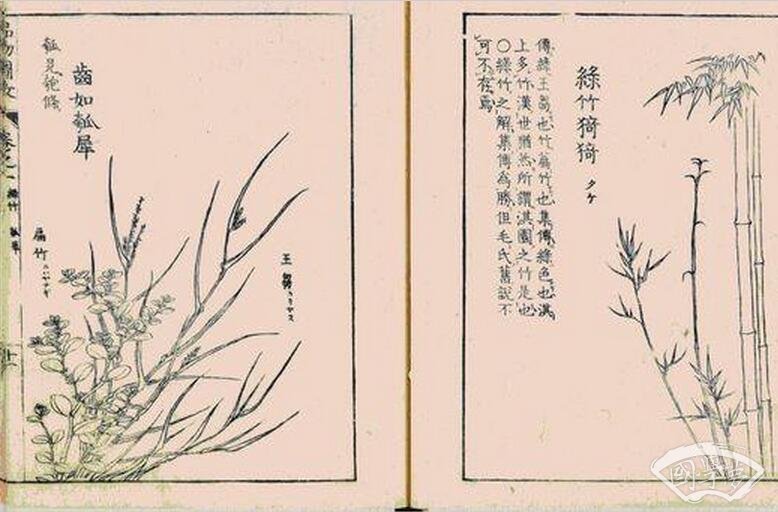 綠竹猗猗 タケ
傳綠王芻也竹萹竹也集傳綠色也淇
上多竹漢世猶然所謂淇園之竹是也
〇綠竹之解集傳為勝但毛氏舊說不
可不存焉
王芻
萹竹
齒如瓠犀
瓠見匏條
國學夢